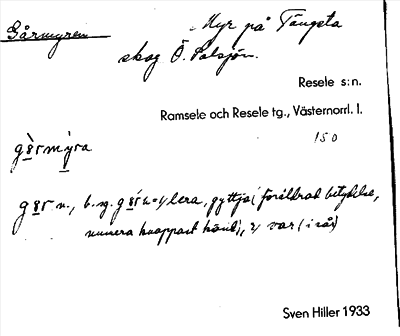 Gårmyren Myr på Tängsta
skog Ö. Valsjön.
Resele s:n.
Ramsele och Resele tg., Västernorrl. l.
150
gɜrmyra
gɜr n., b. sg. gɜrə 1) lera, gyttja (föråldrad betydelse,
numera knappast känd), 2) var (i sår)
Sven Hiller 1933